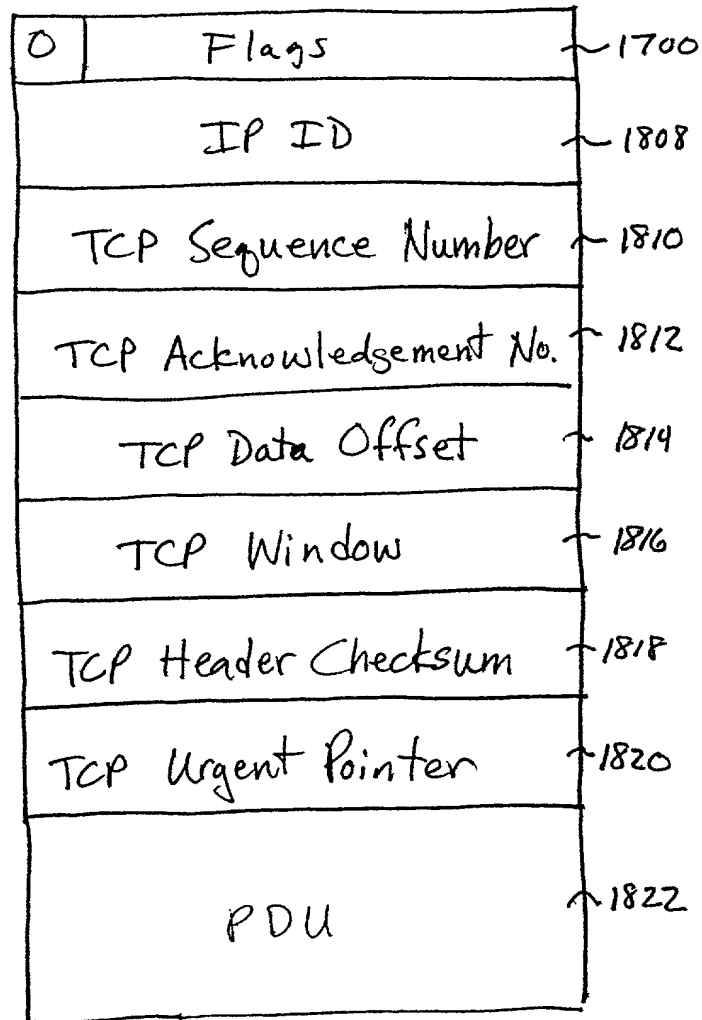 O Flags 1700
IP ID 1808
TCP Sequence Number 1810
TCP Acknowledgement No. 1812
TCP Data Offset 1814
TCP Window 1816
TCP Header Checksum 1818
TCP Urgent Pointer 1820
PDU 1822